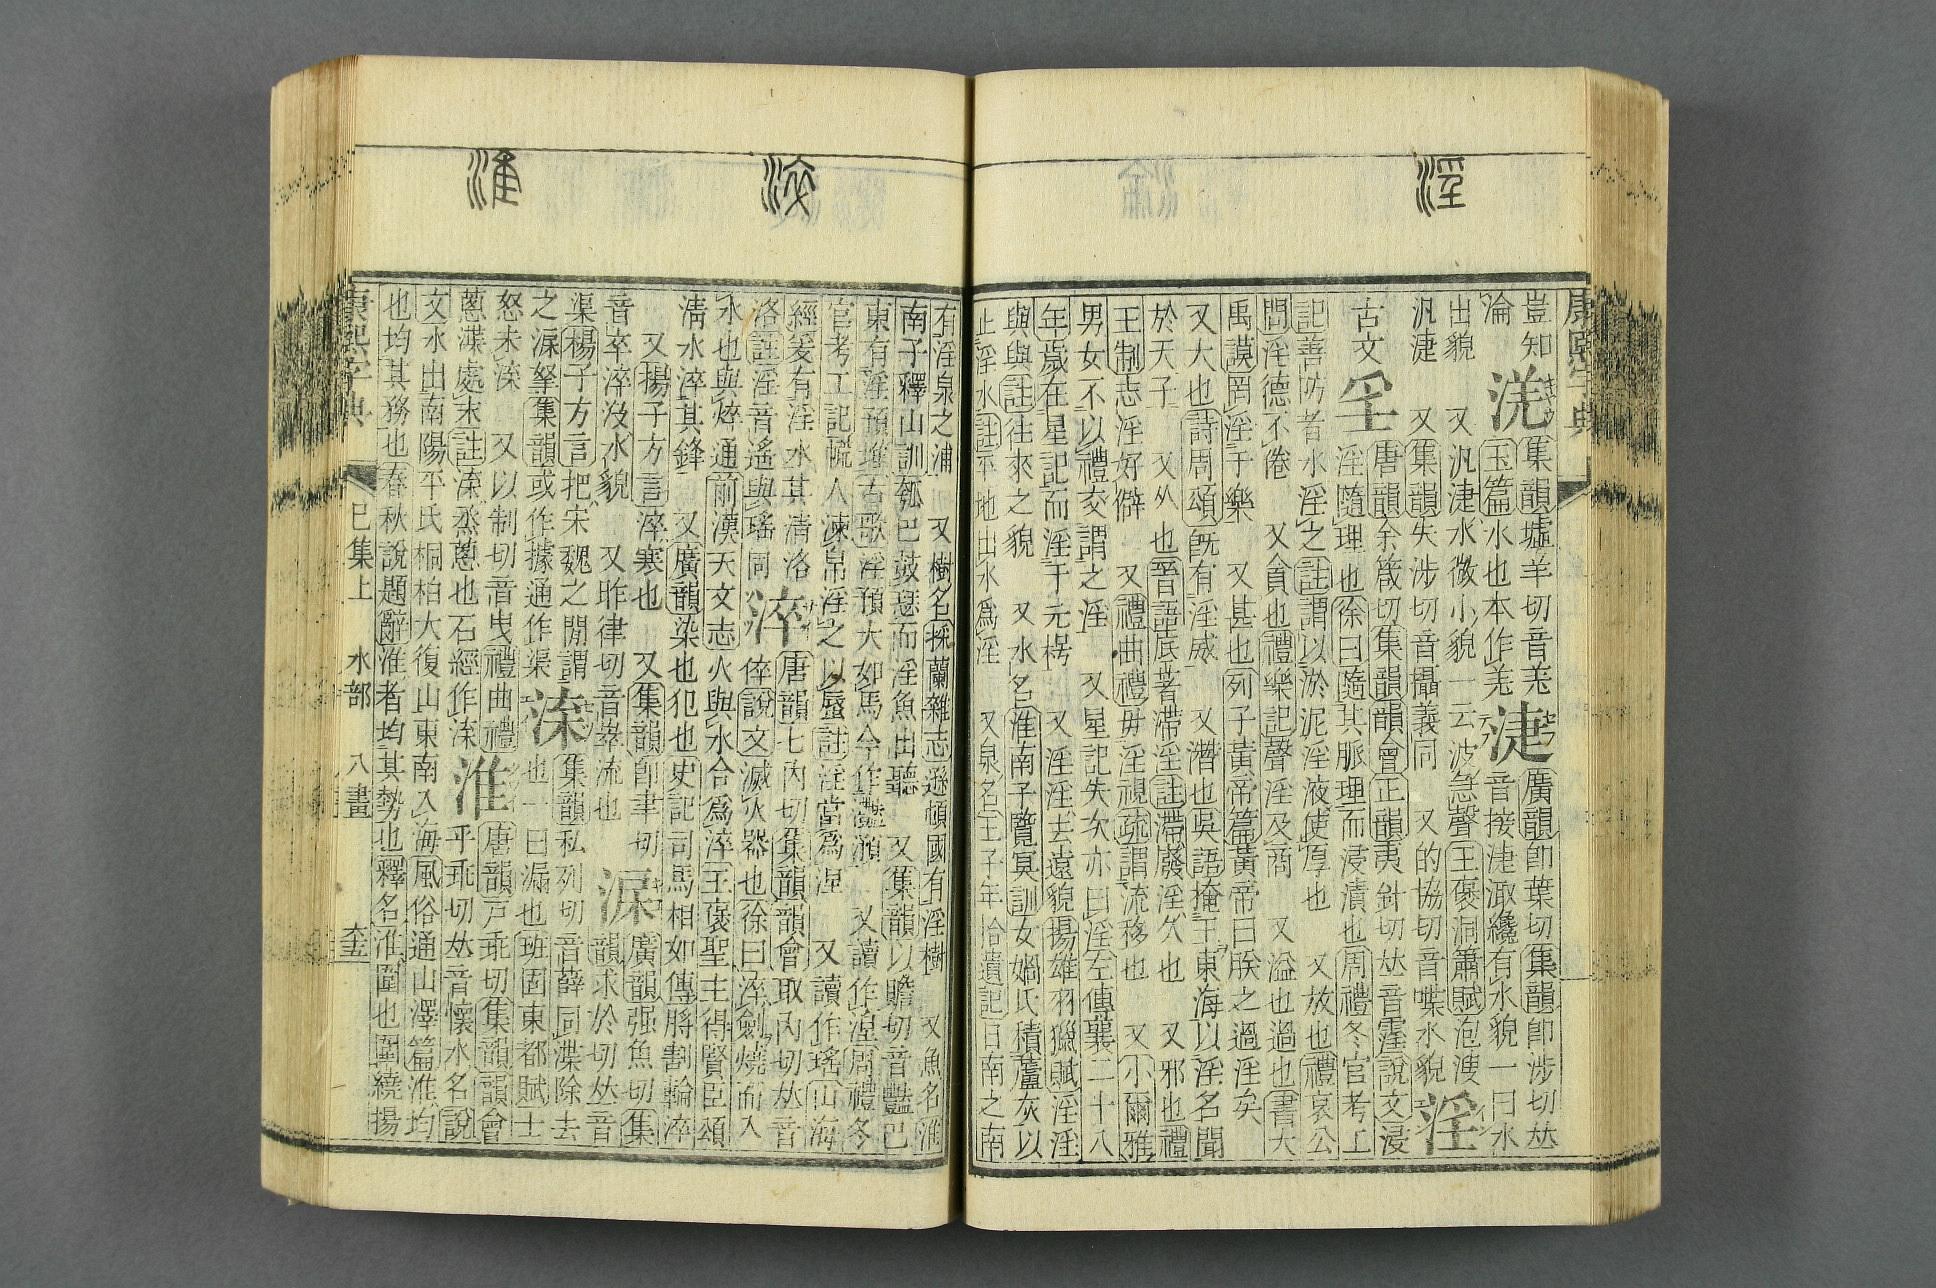 淫
康熙字典
豈知 集韻墟羊切音羌 淁 廣韻卽葉切集韻卽涉切𠀤
淪 玉篇水也本作羌 音接淁㴔纔有水貌一曰水
出貌 又汎淁水微小貌一云波急聲王褒洞簫賦泡溲
汎淁 又集韻失涉切音攝義同 又的協切音喋水貌 淫
古文㸒 唐韻余箴切集韻韻會正韻夷針切𠀤音霪說文浸
淫隨理也徐曰隨其脈理而浸漬也周禮冬官考工
記善防者水淫之註謂以淤泥淫液使厚也 又放也禮哀公
問淫德不倦 又貪也禮樂記聲淫及商 又溢也過也書大
禹謨罔淫于樂 又甚也列子黃帝篇黃帝曰朕之過淫矣
又大也詩周頌旣有淫威 又潛也吳語掩王東海以淫名聞
於天子 又久也晉語底著滯淫註滯廢淫久也 又邪也禮
王制志淫好僻 又禮曲禮毋淫視疏謂流移也 又小爾雅
男女不以禮交謂之淫 又星記失次亦曰淫左傳襄二十八
年歲在星記而淫于元枵 又淫淫去遠貌揚雄羽獵賦淫淫
與與註往來之貌 又水名淮南子覽冥訓女媧氏積蘆灰以
止淫水註平地出水爲淫 又泉名王子年拾遺記日南之南
淬
淮
有淫泉之浦 又樹名採蘭雜志遜頓國有淫樹 又魚名淮
南子釋山訓瓠巴鼓瑟而淫魚出聽 又集韻以贍切音豔巴
東有淫預堆古歌淫預大如馬今作灩澦 又讀作涅周禮冬
官考工記㡛人湅帛淫之以蜃註淫當爲涅 又讀作瑤山海
經爰有淫水其清洛
洛註淫音遙與瑤同 淬 唐韻七內切集韻韻會取內切𠀤音
倅說文滅火器也徐曰淬劒燒而入
水也與焠通前漢天文志火與水合爲淬王褒聖主得賢臣頌
清水淬其鋒 又廣韻染也犯也史記司馬相如傳脟割輪淬
又揚子方言淬寒也 又集韻卽聿切
音卒淬沒水貌 又昨律切音崒流也 淭 廣韻强魚切集
韻求於切𠀤音
渠揚子方言杷宋魏之閒謂
之淭挐集韻或作㯫通作渠 集韻私列切音薛同渫除去
也一曰漏也班固東都賦士
怒未 又以制切音曳禮曲禮
蔥渫處末註烝蔥也石經作 淮 唐韻戸乖切集韻韻會
乎乖切𠀤音懷水名說
文水出南陽平氏桐柏大復山東南入海風俗通山澤篇淮均
也均其務也春秋說題辭淮者均其勢也釋名淮圍也圍繞揚
康熙字典 巳集上 水部 八畫